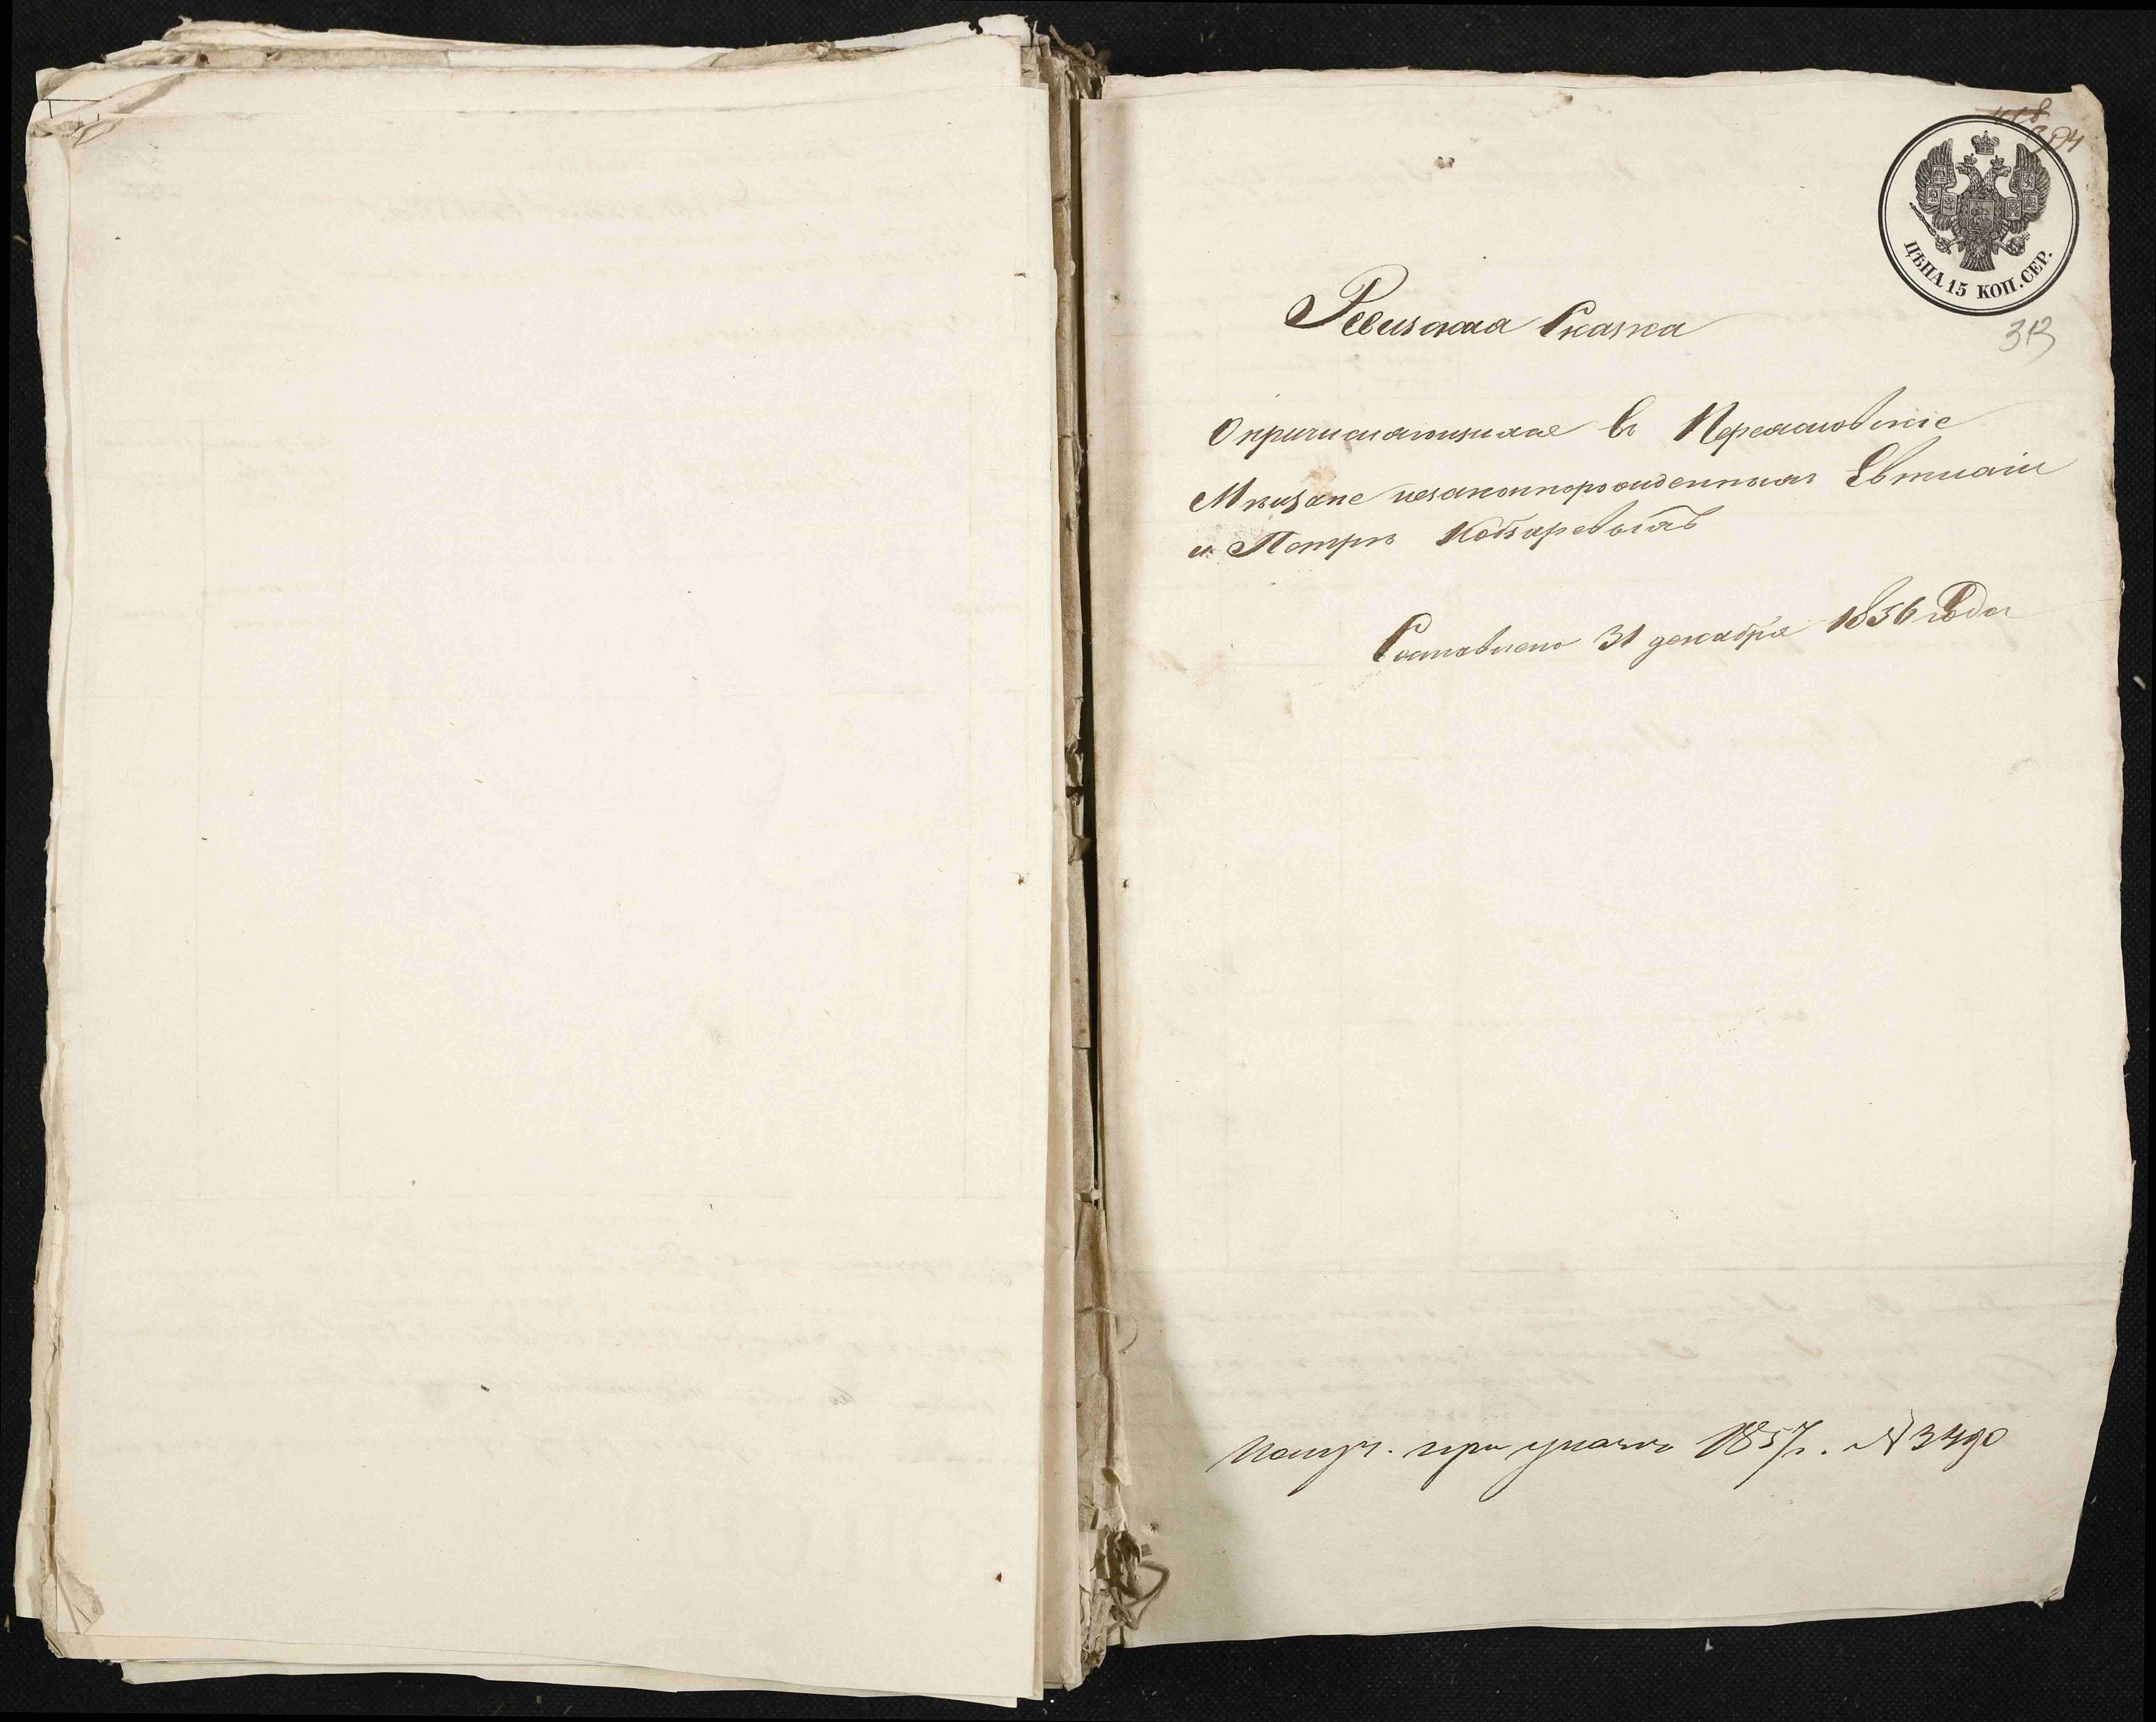 418
394
ЦѢНА 15 КОП. СЕР.
313
Ревизская Сказка
О причисляющихся въ
Мѣщане незаконнорожденныхъ Евтихіи
и Петрѣ
Составлена 31 декабря 1856 года
Получ. при указѣ 1857 г. № 3490